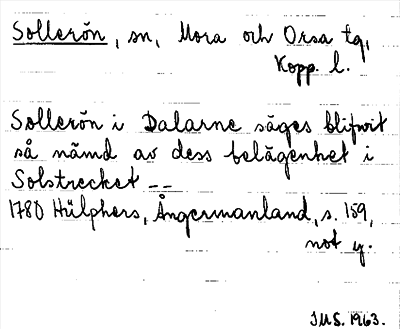 Sollerön, sn, Mora och Orsa tg,
Kopp. l.
Sollerön i Dalarne säges blifwit
så nämd av dess belägenhet i
Solstrecket --
1780 Hülphers, Ångermanland, s. 159,
not y.
IMS. 1963.